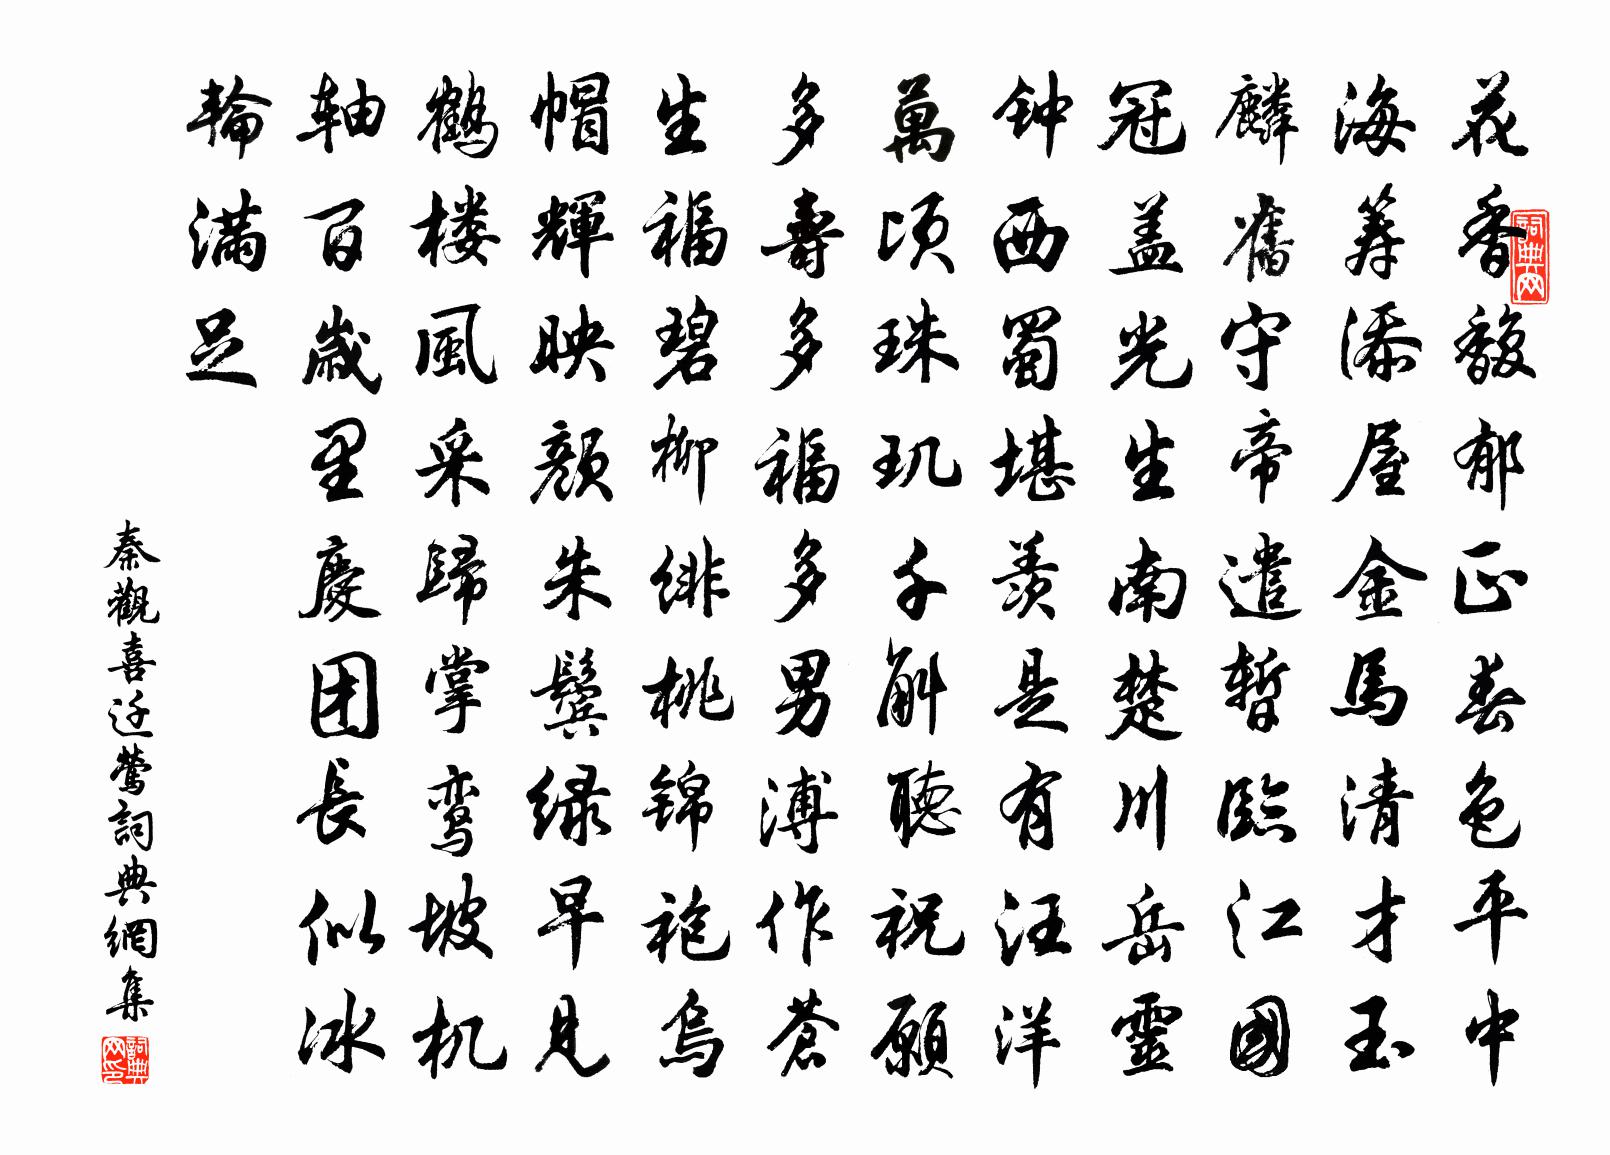 花香馥郁正春色平中
海筹添屋金馬清才玉
麟舊守帝遣暫臨江國
冠盖光生南楚川岳靈
钟西蜀堪羡是有汪洋
萬顷珠玑千斛聽祝願
多壽多福多男溥作蒼
生福碧柳绯桃锦袍烏
帽輝映颜朱鬓绿早見
鶴楼風采歸掌鸾坡机
轴百歲里慶团長似冰
輪满足
秦觀喜迁鶯詞典網集
詞典网
詞典网印